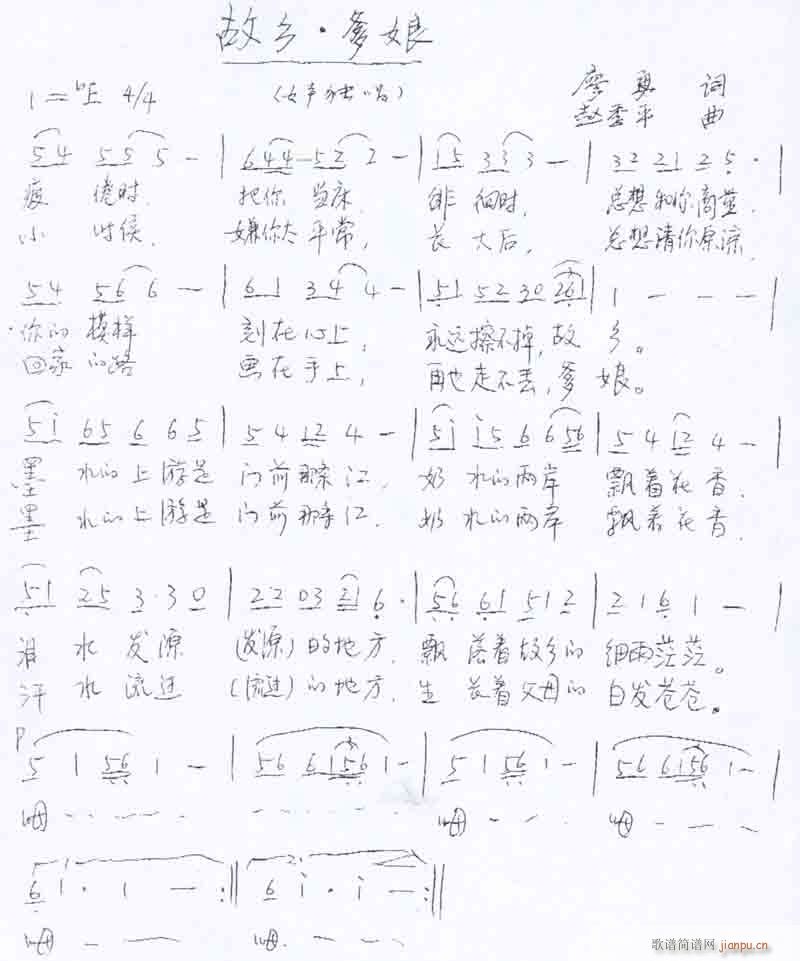 故乡·爹娘
1=bE 4/4 (女声独唱) 廖勇 词
赵季平 曲
5 4 5 5 5 - | 6 4 4 5 2 2 - | 1 5 3 3 3 - | 3 2 2 1 2 5 · |
疲倦时, 把你当床, 徘徊时, 总想和你商量,
小时侯, 嫌你太平常, 长大后, 总想请你原谅,
5 4 5 6 6 - | 6 1 3 4 4 - | 5 1 5 2 3 0 2 6 1 | 1 - - - |
你的模样 刻在心上, 永远擦不掉,故乡。
回家的路 画在手上, 再也走不丢,爹娘。
5 i 6 5 6 6 5 | 5 4 1 2 4 - | 5 i i 5 6 6 5 6 | 5 4 1 2 4 - |
墨水的上游是 门前那条江, 奶水的两岸 飘着花香,
墨水的上游是 门前那条江, 奶水的两岸 飘着花香,
5 1 2 5 3 · 3 0 | 2 2 0 3 2 1 6 · | 5 6 6 1 5 1 2 | 2 1 6 1 - |
泪水发源 (发源)的地方, 飘落着故乡的 细雨茫茫。
汗水流进 (流进)的地方, 生长着父母的 白发苍苍。
P
5 1 5 6 1 - | 5 6 6 1 5 6 1 - | 5 1 5 6 1 - | 5 6 6 1 5 6 1 - |
呣 - - - - - - - - 呣 - - - 呣 - - -
6 1 · 1 - :|| 6 i · i - :||
呣 - - - 呣 - - -
歌谱简谱网
jianpu.cn